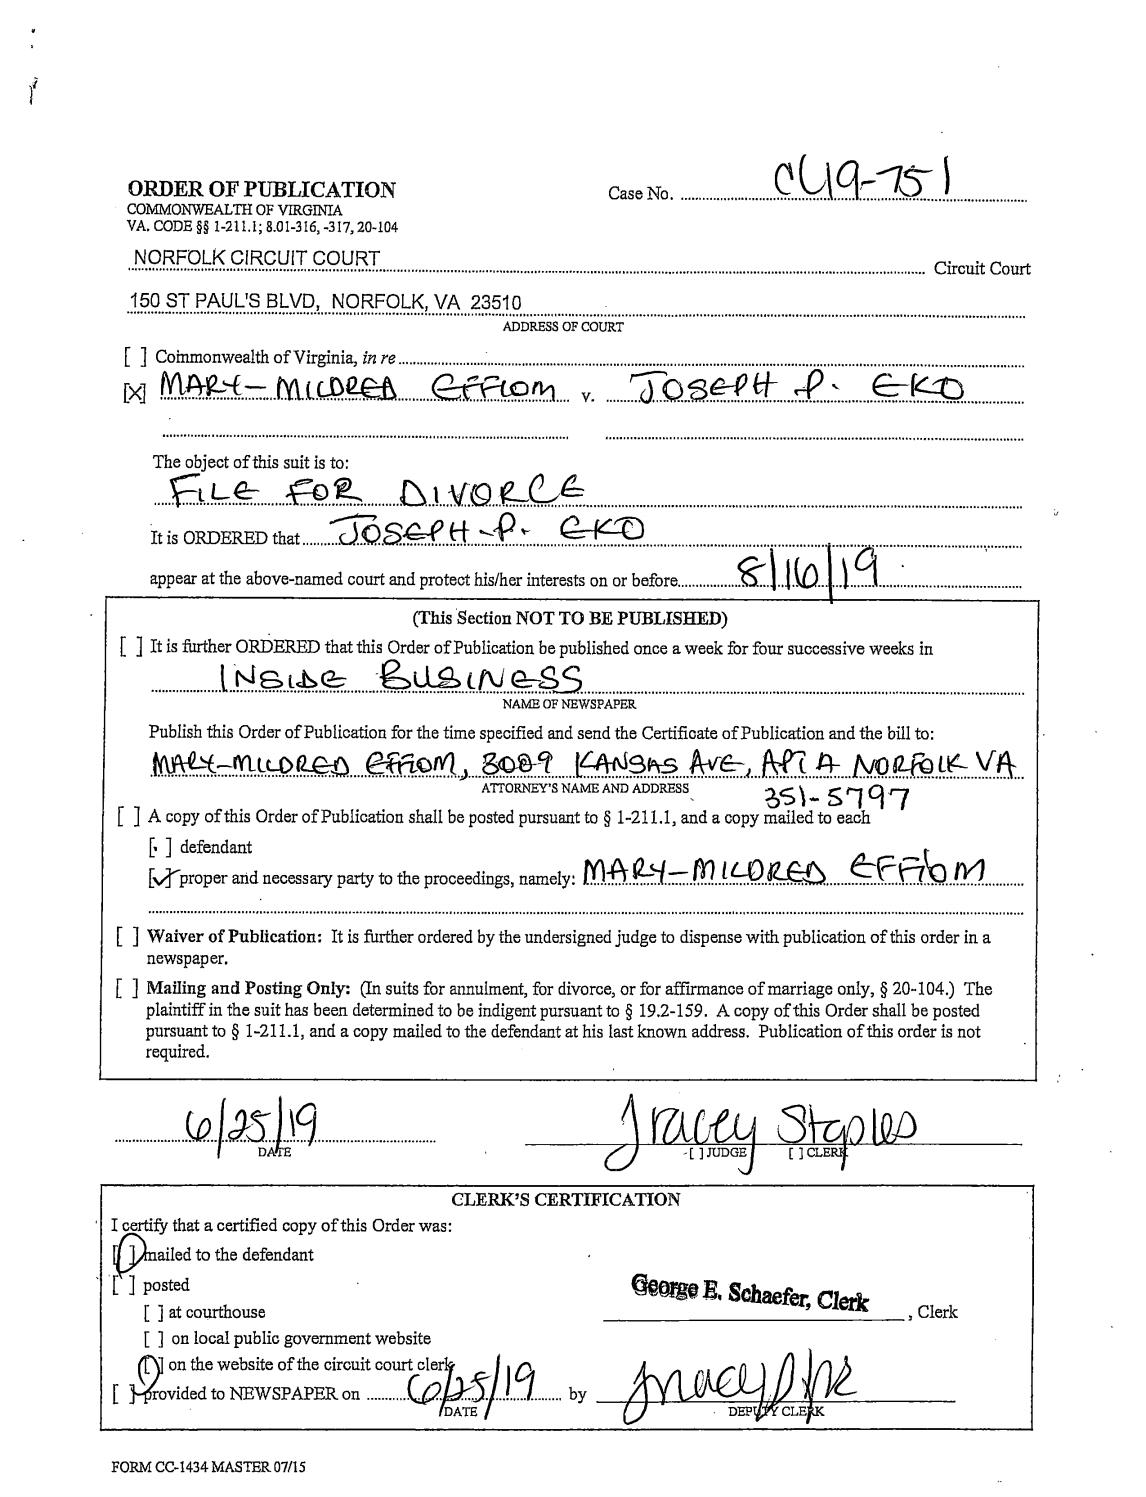 ORDER OF PUBLICATION
Case No. CL19-751
COMMONWEALTH OF VIRGINIA
VA. CODE §§ 1-211.1; 8.01-316, -317, 20-104
NORFOLK CIRCUIT COURT Circuit Court
150 ST PAUL'S BLVD, NORFOLK, VA 23510
ADDRESS OF COURT
[ ] Commonwealth of Virginia, in re
[X] MARY-MILDRED EFFIOM v. JOSEPH P. EKO
The object of this suit is to:
FILE FOR DIVORCE
It is ORDERED that JOSEPH P. EKO
appear at the above-named court and protect his/her interests on or before 8/16/19
(This Section NOT TO BE PUBLISHED)
[ ] It is further ORDERED that this Order of Publication be published once a week for four successive weeks in
INSIDE BUSINESS
NAME OF NEWSPAPER
Publish this Order of Publication for the time specified and send the Certificate of Publication and the bill to:
MARY-MILDRED EFFIOM, 8009 KANSAS AVE, APT A NORFOLK VA
ATTORNEY'S NAME AND ADDRESS
351-5797
[ ] A copy of this Order of Publication shall be posted pursuant to § 1-211.1, and a copy mailed to each
[ ] defendant
[✓] proper and necessary party to the proceedings, namely: MARY-MILDRED EFFIOM
[ ] Waiver of Publication: It is further ordered by the undersigned judge to dispense with publication of this order in a
newspaper.
[ ] Mailing and Posting Only: (In suits for annulment, for divorce, or for affirmance of marriage only, § 20-104.) The
plaintiff in the suit has been determined to be indigent pursuant to § 19.2-159. A copy of this Order shall be posted
pursuant to § 1-211.1, and a copy mailed to the defendant at his last known address. Publication of this order is not
required.
6/25/19 Tracey Staples
DATE [ ] JUDGE [ ] CLERK
CLERK'S CERTIFICATION
I certify that a certified copy of this Order was:
[ ] mailed to the defendant
[ ] posted
George E. Schaefer, Clerk , Clerk
[ ] at courthouse
[ ] on local public government website
[ ] on the website of the circuit court clerk
[ ] provided to NEWSPAPER on 6/25/19 by
DATE DEPUTY CLERK
FORM CC-1434 MASTER 07/15